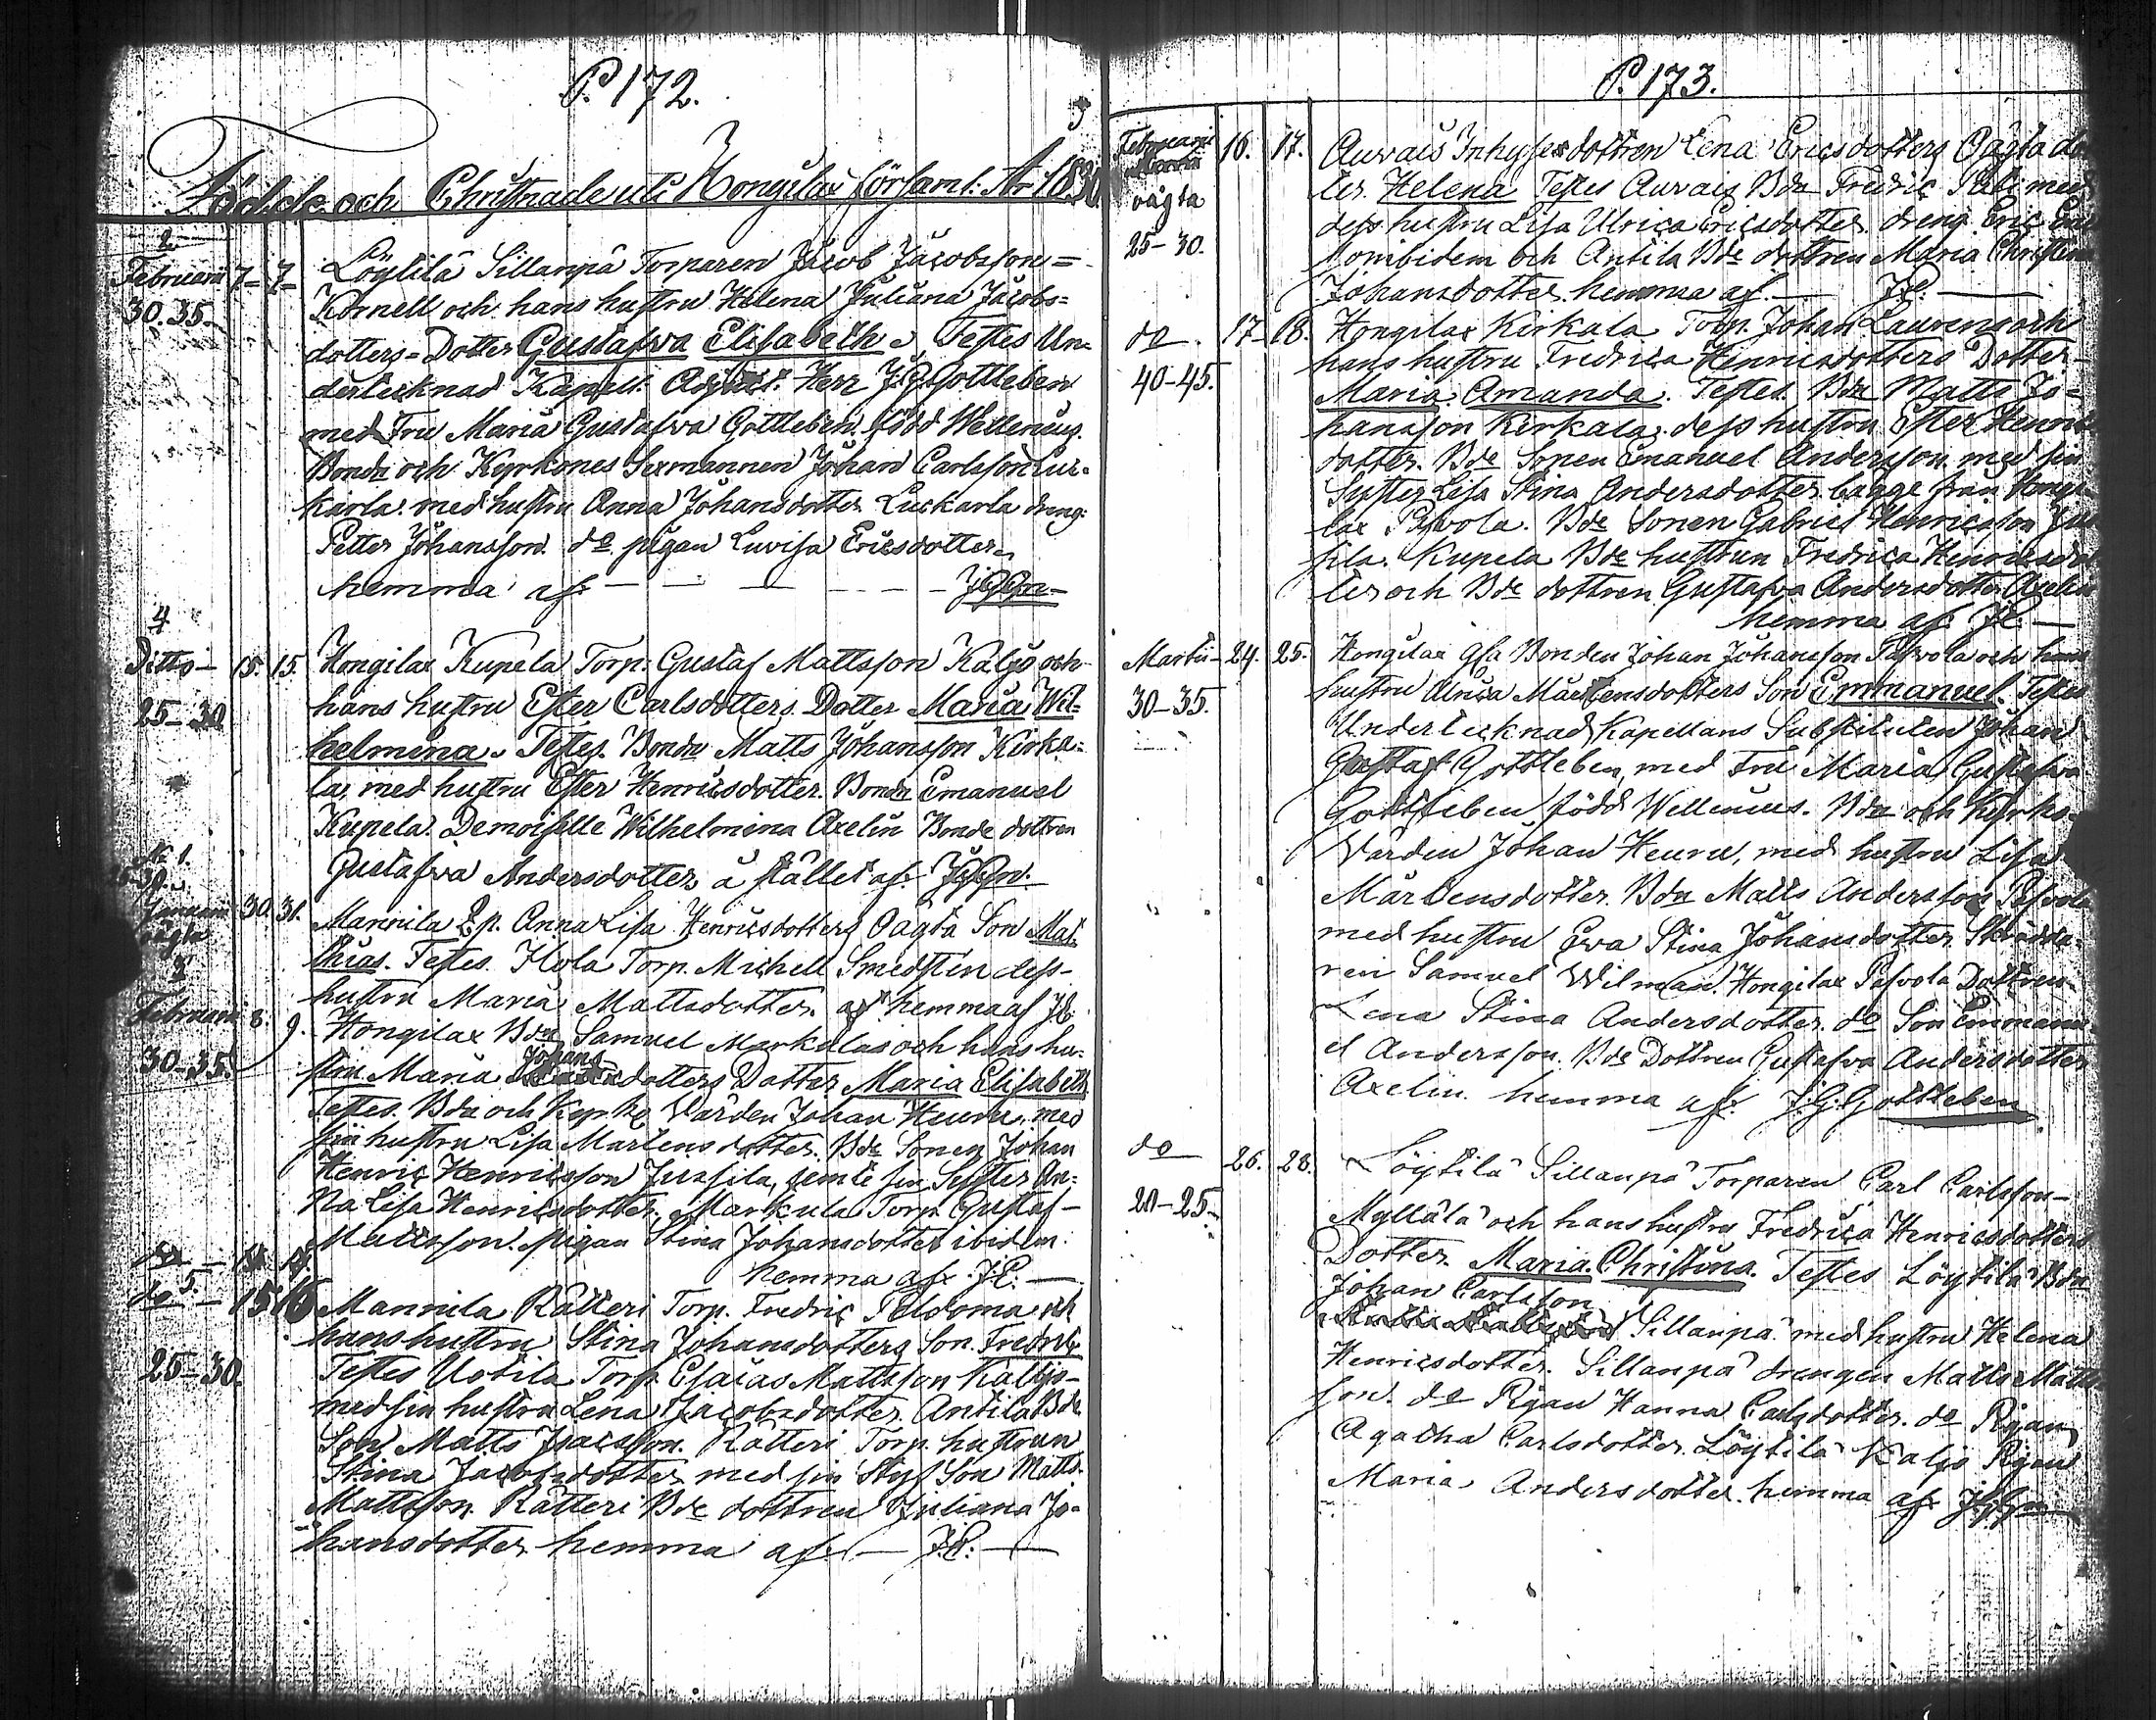 P. 172.
Födde och Christnade uti Hongilax församl: År 1830
2
Februarii 7 7 Löytilä Sillanpä Torparen Jacob Jacobsson
30.35. Kornell och hans hustru Helena Juliana Jacobs=
dotters Dotter Gustafva Elisabeth. Testes Un=
dertecknad Kapell. Adjunct. Herr J.G. Gottleben
med Fru Maria Gustafva Gottleben född Wellenius.
Bonden och Kyrkones Sexmannen Johan Carlsson Luc=
karla med hustru Anna Johansdotter Luckarla dreng.
Petter Johansson do pigan Lovisa Ericsdotter
hemma af JGGn
4
Ditto 15. 15. Hongilax Kupela Torp. Gustaf Mattsson Kaljo och
25-30 hans hustru Ester Carlsdotters Dotter Maria Wil=
helmina. Testes. Bonden Matts Johansson Kirka=
la, med hustru Ester Henricsdotter. Bonden Emanuel
Kupela. Demoiselle Wilhelmina Axelin Bonde dottren
Gustafva Andersdotter å stället af JGGn.
No 1.
Januarii 30. 31. Mannila Anna Lisa Henricsdotters Oägta Son Mat=
oägta thias. Testes. Torp. Michell Smedsten dess
3 hustru Maria Mattsdotter hemma af
Februarii 8. 9. Hongilax Bdn Samuel Markula och hans hu=
30-35. Johans
stru Maria dotters Dotter Maria Elisabeth
Testes. Bdn och Kyrko Värden Johan Heuru, med
sin hustru Lisa Martensdotter. Bde Sonen Johan
Henric Henricsson Jussila, jemte sin Syster An=
na Lisa Henricsdotter, Markula Torp. Gustaf
Mattsson. pigan Stina Johansdotter ibidem.
hemma af
do 5. 15 16 Mannila Rätteri Torp. Fredric Peldoma och
hans hustru Stina Johansdotters Son. Fredric
25-30. Testes Uotila Torp. Esaias Mattsson Kaljo
med sin hustru Lena Jacobsdotter. Antila Bde
Son Matts Isacsson. Rätteri Torp. hustrun
Stina Jacobsdotter med sin Styf Son Matts
Mattsson. Rätteri Bde dottren Juliana Jo=
hansdotter hemma af
P. 173.
Februarii 16. 17. Auvais Inhyses dottren Lena Ericsdotters Oägta
oägta ter. Helena Testes Auvais Bdn Fredric med
25-30. dess hustru Lisa Ulrica Ericsdotter. dreng Eric
ibidem och Antila Bde dottren Maria Christina
Johansdotter. hemma af
do 17 18. Hongilax Kirkala Torp. Johan Laurens och
40-45. hans hustru Fredrica Henricsdotters Dotter
Maria Amanda. Testes. Bdn Matts Jo=
hansson Kirkala, dess hustru Ester Henrics
dotter. Bde Sonen Emanuel Andersson med sin
Syster Lisa Stina Andersdotter bägge från Hongi
lax Pafvola. Bde Sonen Gabriel Henricsson Jus
sila. Kupela Bde hustrun Fredrica Henricsdot
ter och Bde dottren Gustafva Andersdotter Axelin
hemma af
Martii 24. 25. Hongilax Bonden Johan Johansson Pafvola och hans
30-35. hustru Märtensdotters Son Emmanuel. Testes
Undertecknad Kapellans Substituten Johan
Gustaf Gottleben, med Fru Maria Gustafva
Gottleben, född Wellenius. Bdn och Kyrko
Värden Johan Heuru, med hustru Lisa
Märtensdotter. Bdn Matts Andersson Pafvola
med hustru Eva Stina Johansdotter. Skrädda=
ren Samuel Wilman. Hongilax Pafvola Dottren
Lena Stina Andersdotter. do Son Emmanu
el Andersson. Bde Dottren Gustafva Andersdotter
Axelin. hemma af J.G. Gottleben
do 26. 28. Löytilä Sillanpä Torparen Carl Carlsson
20-25. Myllälä och hans hustru Fredrica Henricsdotters
Dotter. Maria Christina. Testes Löytilä Bdn
Johan Carlsson
Sillanpä med hustru Helena
Henricsdotter. Sillanpä drengen Matts Matts
son. do Pigan Hanna Carlsdotter. do Pigan
Agatha Carlsdotter. Löytilä Kaljo Pigan
Maria Andersdotter. hemma af JGGn